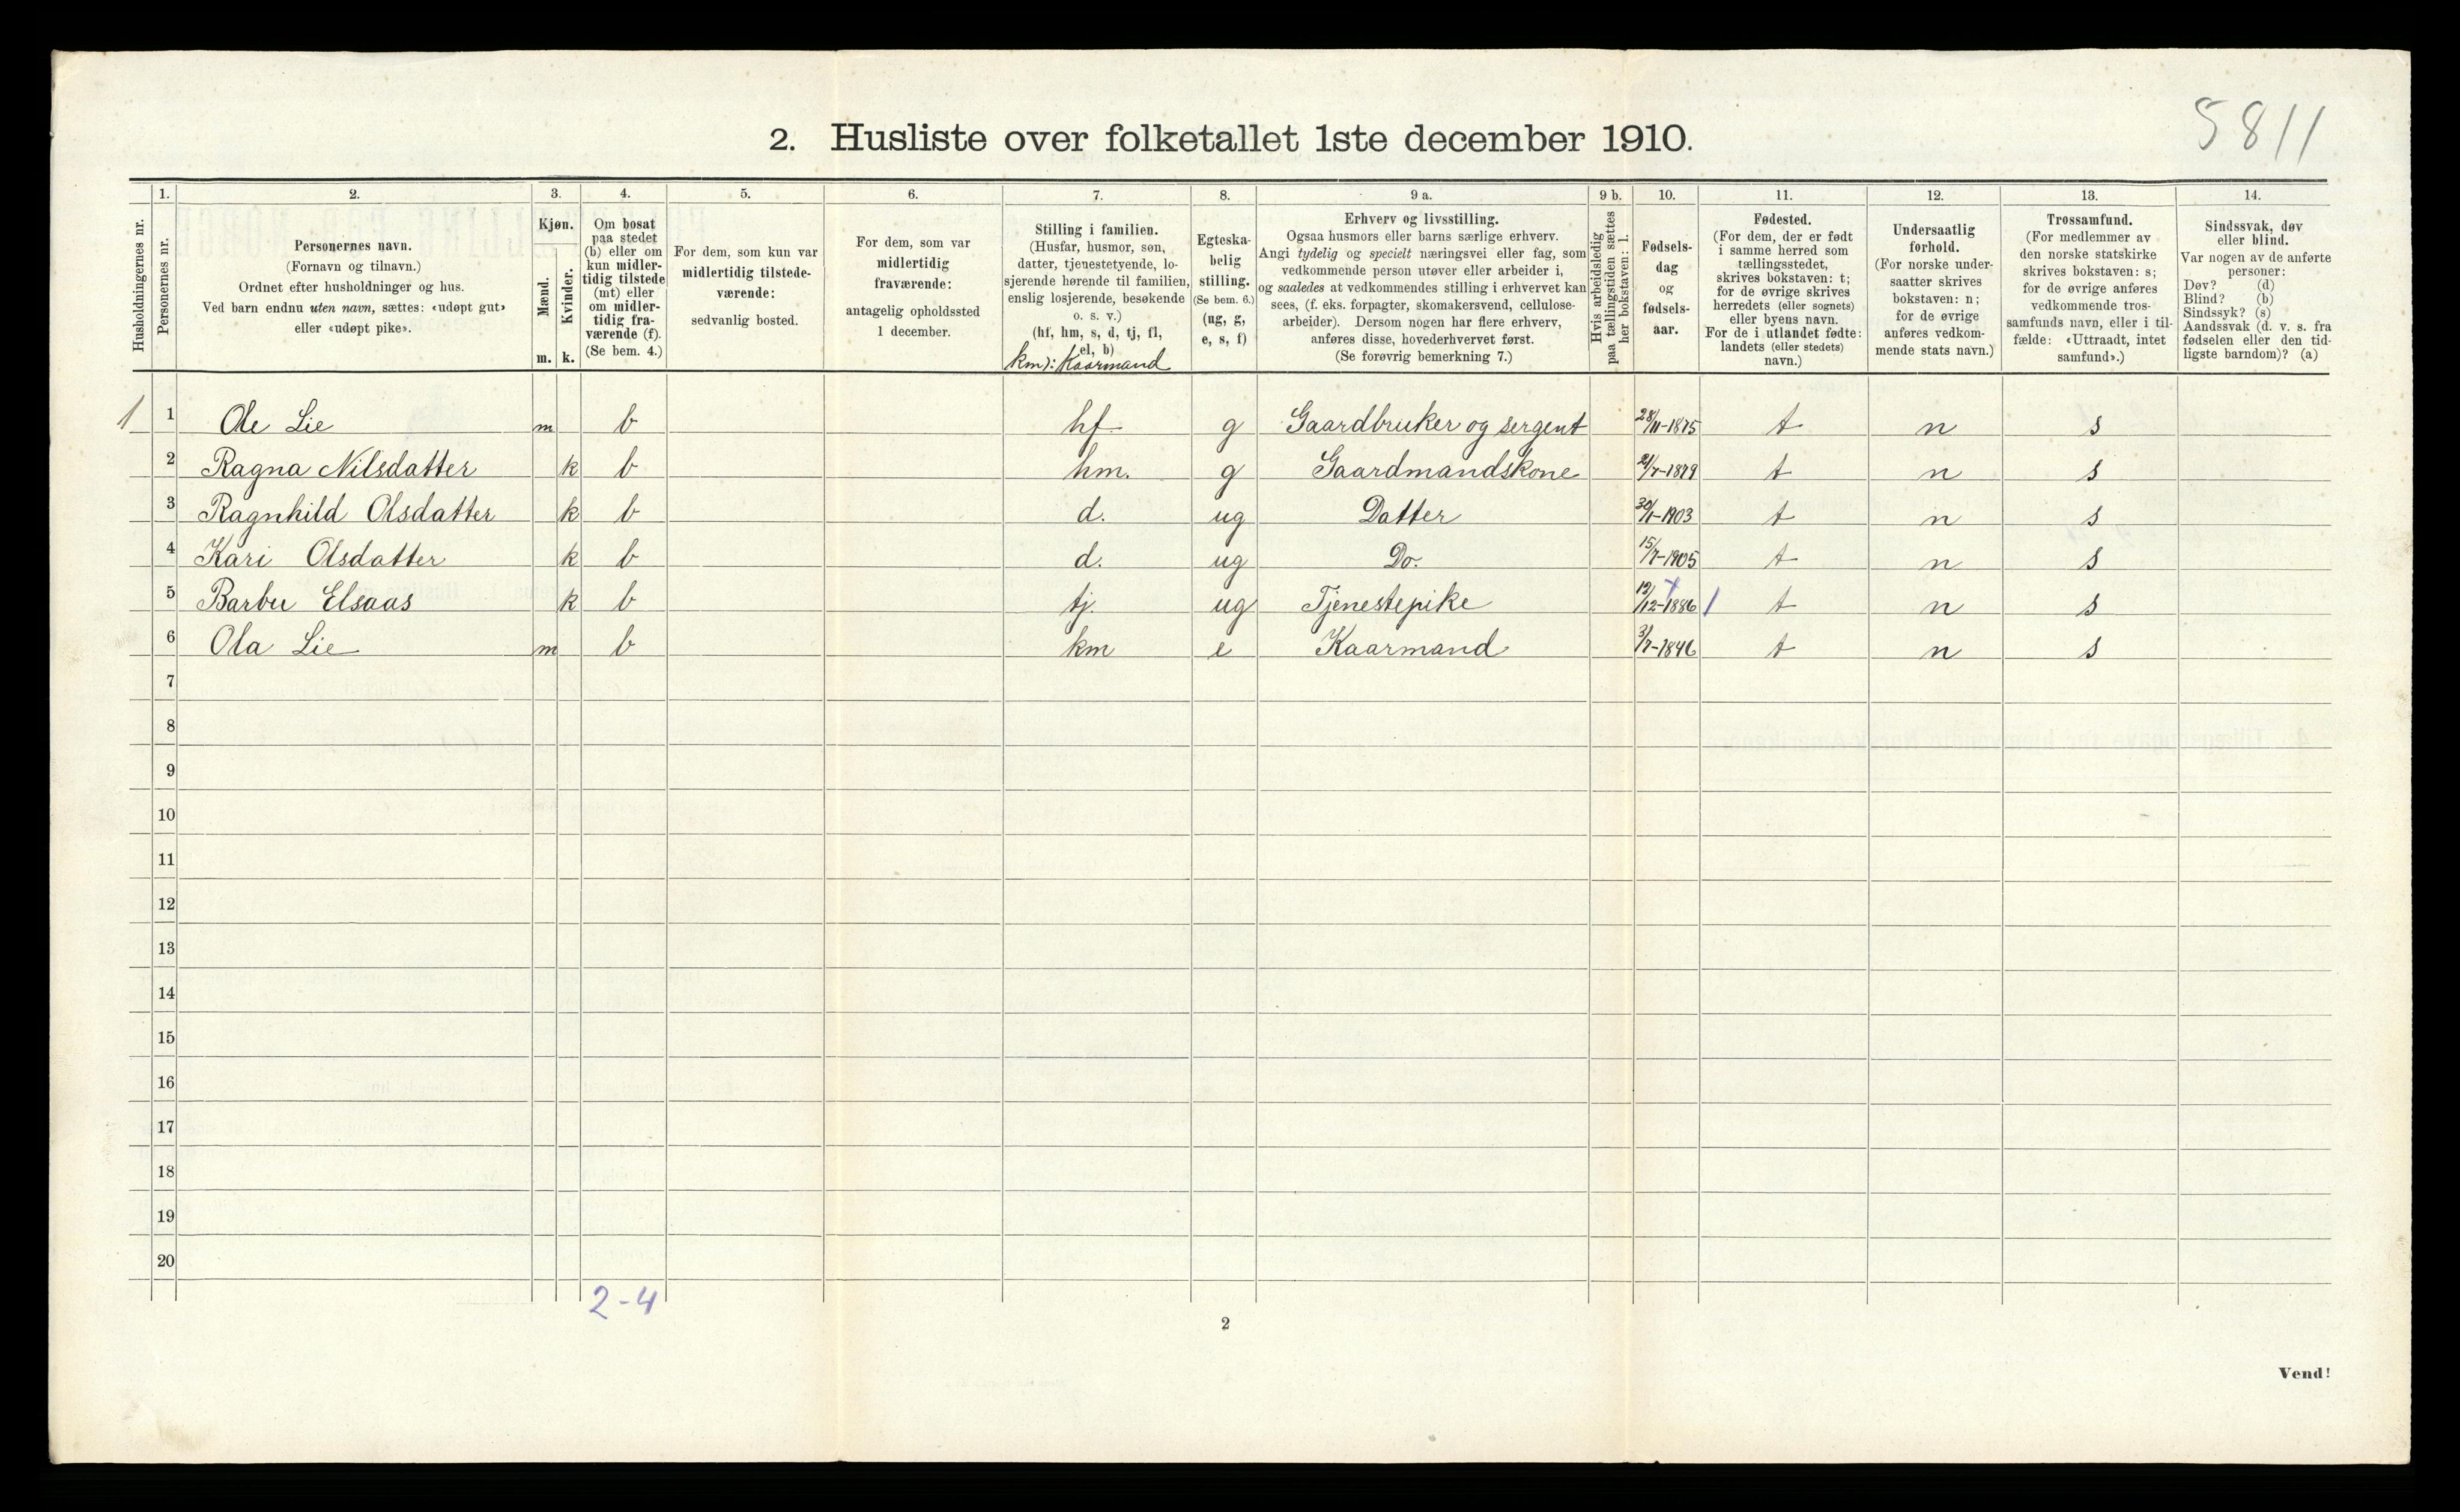 5811
2. Husliste over folketallet 1ste december 1910.
Husholdningernes nr.
1.
Personernes nr.
2.
Personernes navn.
(Fornavn og tilnavn.)
Ordnet efter husholdninger og hus.
Ved barn endnu uten navn, sættes: «udøpt gut»
eller «udøpt pike».
3.
Kjøn.
Mænd.
m.
Kvinder.
k.
4.
Om bosat
paa stedet
(b) eller om
kun midler-
tidig tilstede
(mt) eller
om midler-
tidig fra-
værende (f).
(Se bem. 4.)
5.
For dem, som kun var
midlertidig tilstede-
værende:
sedvanlig bosted.
6.
For dem, som var
midlertidig
fraværende:
antagelig opholdssted
1 december.
7.
Stilling i familien.
(Husfar, husmor, søn,
datter, tjenestetyende, lo-
sjerende hørende til familien,
enslig losjerende, besøkende
o. s. v.)
(hf, hm, s, d, tj, fl,
el, b)
km): Kaarmand
8.
Egteska-
belig
stilling.
(Se bem. 6.)
(ug, g,
e, s, f)
9 a.
Erhverv og livsstilling.
Ogsaa husmors eller barns særlige erhverv.
Angi tydelig og specielt næringsvei eller fag, som
vedkommende person utøver eller arbeider i,
og saaledes at vedkommendes stilling i erhvervet kan
sees, (f. eks. forpagter, skomakersvend, cellulose-
arbeider). Dersom nogen har flere erhverv,
anføres disse, hovederhvervet først.
(Se forøvrig bemerkning 7.)
9 b.
Hvis arbeidsledig
paa tællingstiden sættes
her bokstaven: l.
10.
Fødsels-
dag
og
fødsels-
aar.
11.
Fødested.
(For dem, der er født
i samme herred som
tællingsstedet,
skrives bokstaven: t;
for de øvrige skrives
herredets (eller sognets)
eller byens navn.
For de i utlandet fødte:
landets (eller stedets)
navn.)
12.
Undersaatlig
forhold.
(For norske under-
saatter skrives
bokstaven: n;
for de øvrige
anføres vedkom-
mende stats navn.)
13.
Trossamfund.
(For medlemmer av
den norske statskirke
skrives bokstaven: s;
for de øvrige anføres
vedkommende tros-
samfunds navn, eller i til-
fælde: «Uttraadt, intet
samfund».)
14.
Sindssvak, døv
eller blind.
Var nogen av de anførte
personer:
Døv? (d)
Blind? (b)
Sindssyk? (s)
Aandssvak (d. v. s. fra
fødselen eller den tid-
ligste barndom)? (a)
1 1 Ole Lie m b hf g Gaardbruker og sergent 28/11-1875 t n s
2 Ragna Nilsdatter k b hm. g Gaardmandskone 21/7-1879 t n s
3 Ragnhild Olsdatter k b d. ug Datter 30/1-1903 t n s
4 Kari Olsdatter k b d. ug Do. 15/7-1905 t n s
5 Barbu Elsaas k b tj. ug Tjenestepike 12/12-1886 t n s
6 Ola Lie m b km e Kaarmand 3/7-1846 t n s
7
8
9
10
11
12
13
14
15
16
17
18
19
20
2-4
2
Vend!